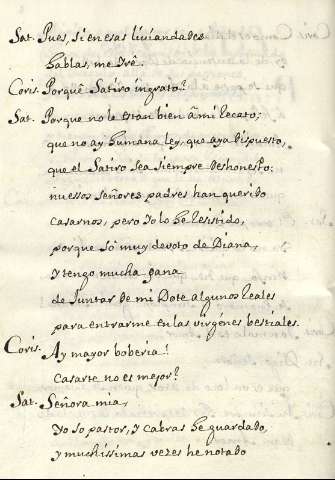 Sat. Pues, si en esas liviandades
hablas, me Yrê.
Coris. Porquê Satiro ingrato?
Sat. Porque no le estan bien â mi Recato;
que no ay humana ley, que aya dispuesto,
que el Satiro sea siempre deshonesto;
nuessos señores padres han querido
casarnos, pero yo lo he Resistido,
porque sô muy devoto de Diana,
y tengo mucha gana
de Juntar de mi Dote algunos Reales
para entrarme en las virgênes bestiales.
Coris. Ay mayor boberia!
Casarte no es mejor?
Sat. Señora mia,
Yo so pastor, y cabras he guardado,
y muchissimas vezes he notado